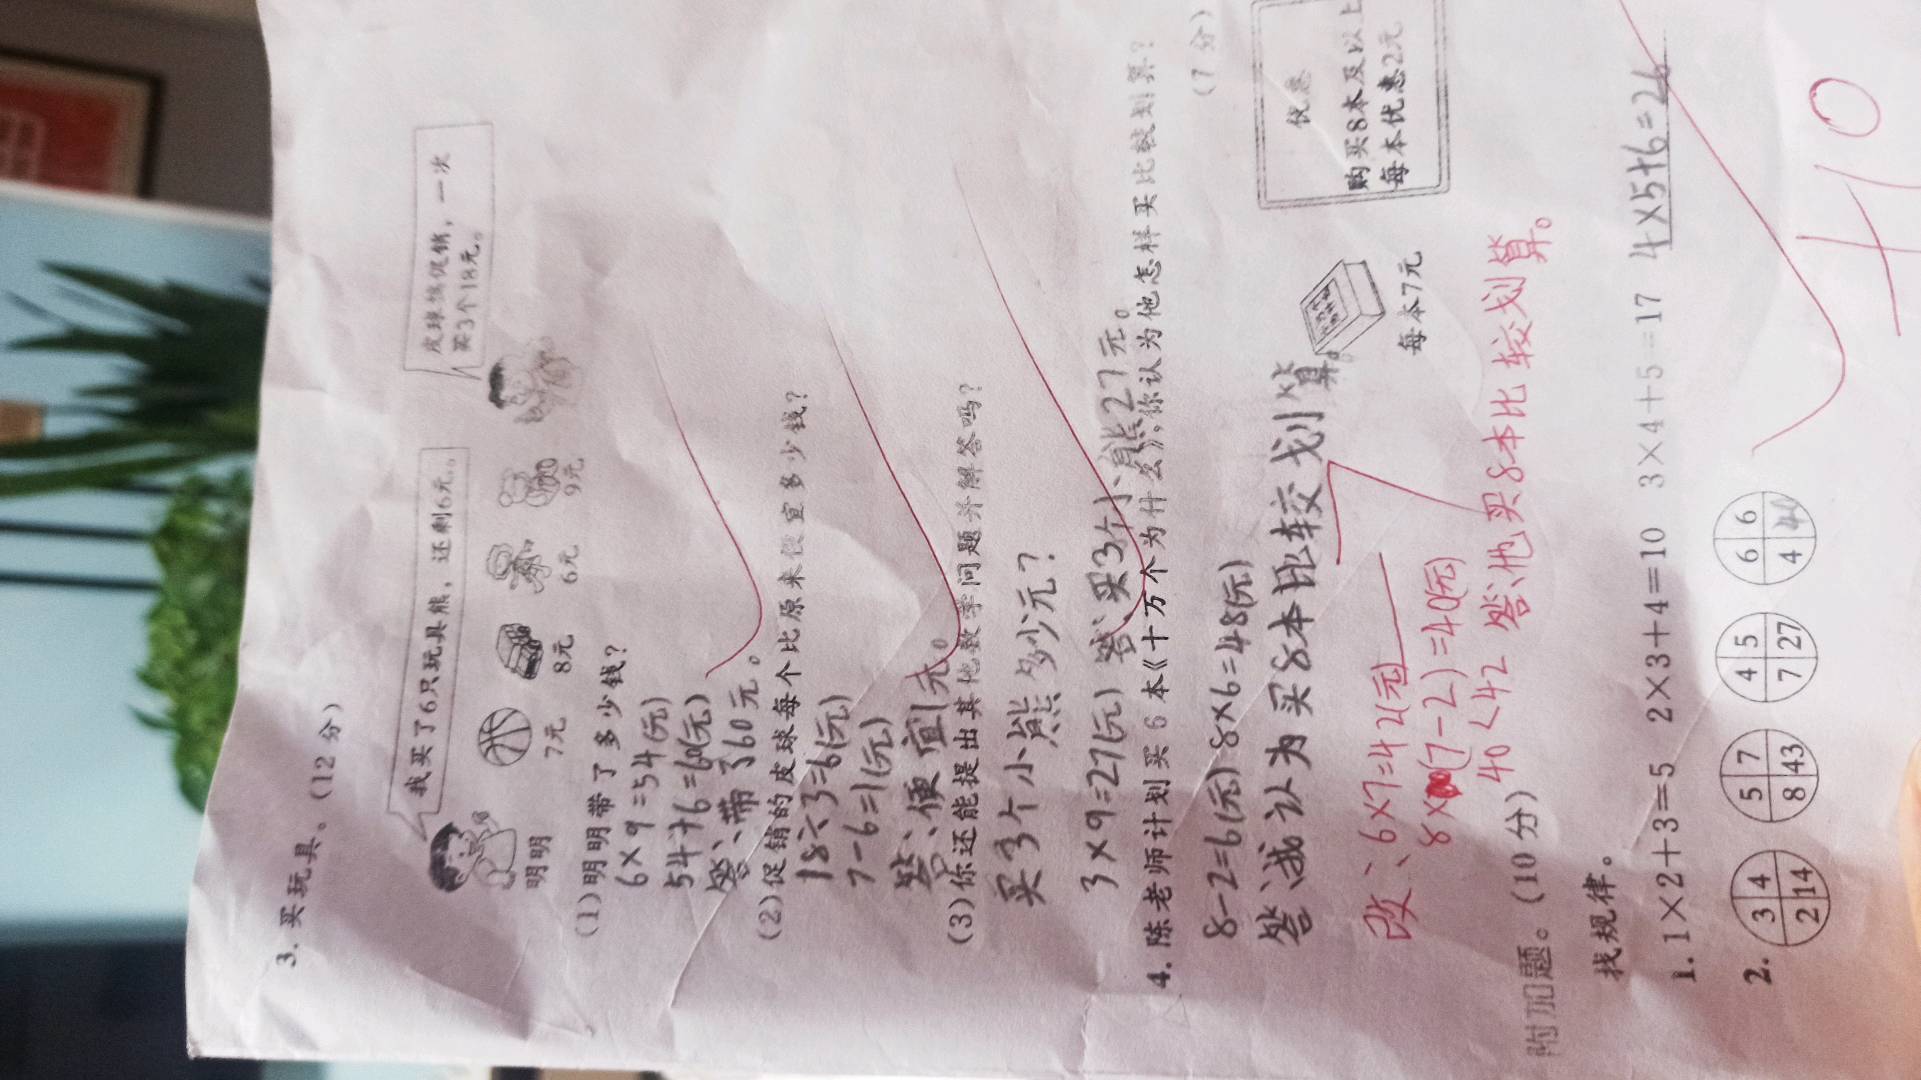 3. 买玩具。(12分)
我买了6只玩具熊，还剩6元。
皮球惊促销，一次
买3个18元。
明明
7元
8元
6元
9元
(1)明明带了多少钱?
6×9=54(元)
54+6=60(元)
答:带了60元。
(2)促销的皮球每个比原来便宜多少钱?
18÷3=6(元)
7-6=1(元)
答:便宜1元。
(3)你还能提出其他数学问题并解答吗?
买3个小熊多少元?
3×9=27(元) 答:买3个小熊27元。
4. 陈老师计划买6本《十万个为什么》,你认为他怎样买比较划算?
(7分)
8-2=6(元) 8×6=48(元)
答:我认为买8本比较划算。
每本7元
优惠
购买8本及以上
每本优惠2元
改:6×7=42(元)
8×(7-2)=40(元)
40<42 答:他买8本比较划算。
附加题。(10分)
找规律。
1. 1×2+3=5 2×3+4=10 3×4+5=17 4×5+6=26
2.
3 4
2 14
5 7
8 43
4 5
7 27
6 6
4 40
+10